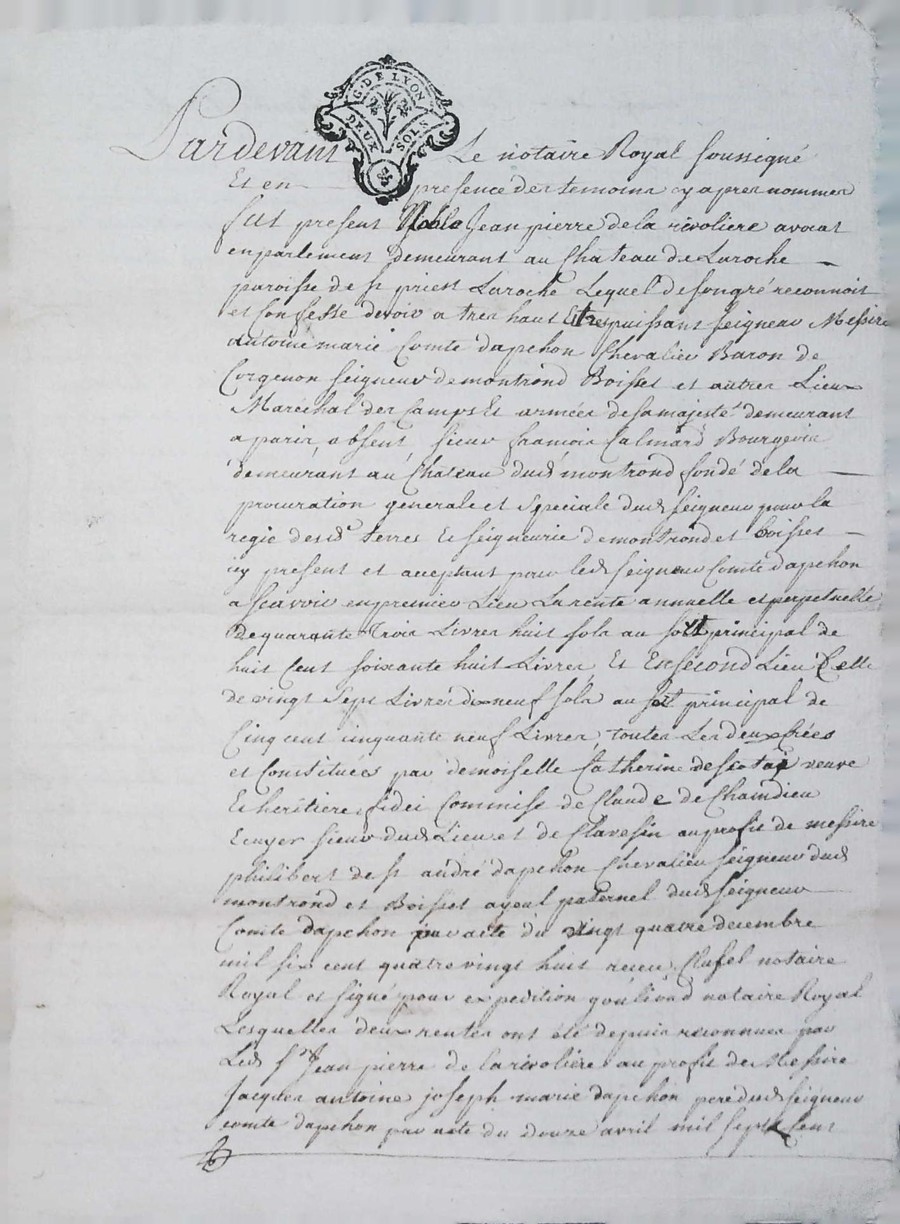 G. DE LYON
DEUX SOLS
Pardevant Le notaire Royal soussigné
Et en presence des temoins cy apres nommes
fut present Noble Jean pierre de la rivoliere avocat
en parlement demeurant au Chateau de Laroche
paroisse de st priest Laroche Lequel de son gré reconnoit
et confesse devoir a tres haut Et tres puissant seigneur Messire
antoine marie Comte dapchon Chevalier Baron de
Corgenon seigneur de montrond Boisset et autres Lieux
Maréchal des Camps Et armées de sa majesté demeurant
a paris, absent, sieur francois Calmard Bourgeois
demeurant au Chateau dud montrond fondé de la
procuration generale et speciale dud seigneur pour la
regie desd. terres Et seigneurie de montrond et boisset
icy present et acceptant pour led seigneur Comte dapchon
a scavoir en premier Lieu La rente annuelle et perpetuelle
de quarante trois Livres huit sols au sort principal de
huit Cent soixante huit Livres, Et En second Lieu Celle
de vingt sept Livres dix neuf sols au sort principal de
Cinq cent cinquante neuf Livres, toutes Les deux Créés
et Constituées par demoiselle Catherine veuve
Et heritiere fidei Commiss de Claude de Chamdieu
Ecuyer sieur dud Lieu et de Clavesin au profit de messire
philibert de st andré dapchon Chevalier seigneur dud
montrond et Boisset ayeul paternel dud seigneur
Comte dapchon par acte du vingt quatre decembre
mil six cent quatre vingt huit receu Clusel notaire
Royal et signé pour expedition notaire Royal
Lesquelles deux rentes ont été depuis reconnues par
Led sr Jean pierre de la rivoliere au profit de Messire
Jacques antoine joseph marie dapchon pere dud seigneur
comte dapchon par acte du douze avril mil sept Cent